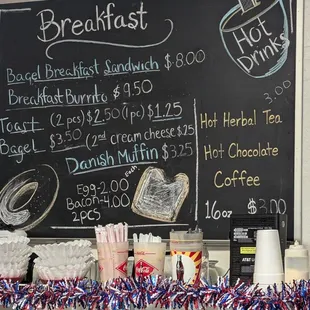 Breakfast
Hot
Drinks
Bagel Breakfast Sandwich $8.00
Breakfast Burrito $9.50
3.00
Toast (2 pcs) $2.50 (1pc) $1.25
Bagel $3.50 (2nd cream cheese $25
Danish Muffin $3.25
Each
Egg-2.00
Bacon-4.00
2PCS
Hot Herbal Tea
Hot Chocolate
Coffee
16oz $3.00
AT&T